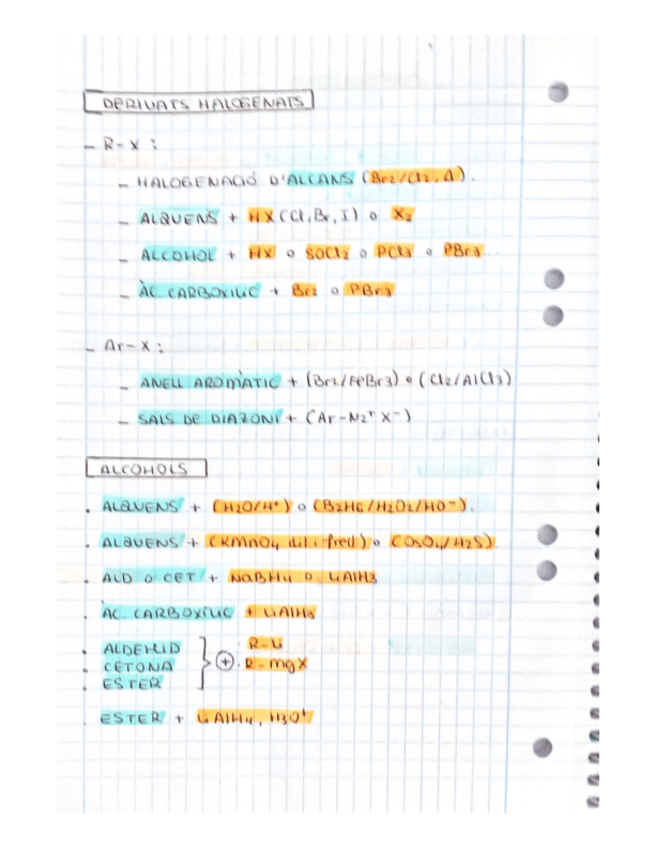 DERIVATS HALOGENATS
- R-X:
- HALOGENACIÓ D'ALCANS (Br2/Cl2, Δ).
- ALQUENS + HX (Cl, Br, I) o X2
- ALCOHOL + HX o SOCl2 o PCl3 o PBr3...
- ÀC CARBOXILIC + Br2 o PBr3
- Ar-X:
- ANELL AROMÀTIC + (Br2/FeBr3) o (Cl2/AlCl3)
- SALS DE DIAZONI + (Ar-N2+ X-)
ALCOHOLS
. ALQUENS + (H2O/H+) o (B2H6/H2O2/HO-).
. ALQUENS + (KMnO4 dil i fred) o (OsO4/H2S)
. ALD O CET + NaBH4 o LiAlH3
. ÀC. CARBOXILIC + LiAlH3
. ALDEHID
. CETONA } + : R-Li
. ESTER R-MgX
. ESTER + LiAlH4, H3O+